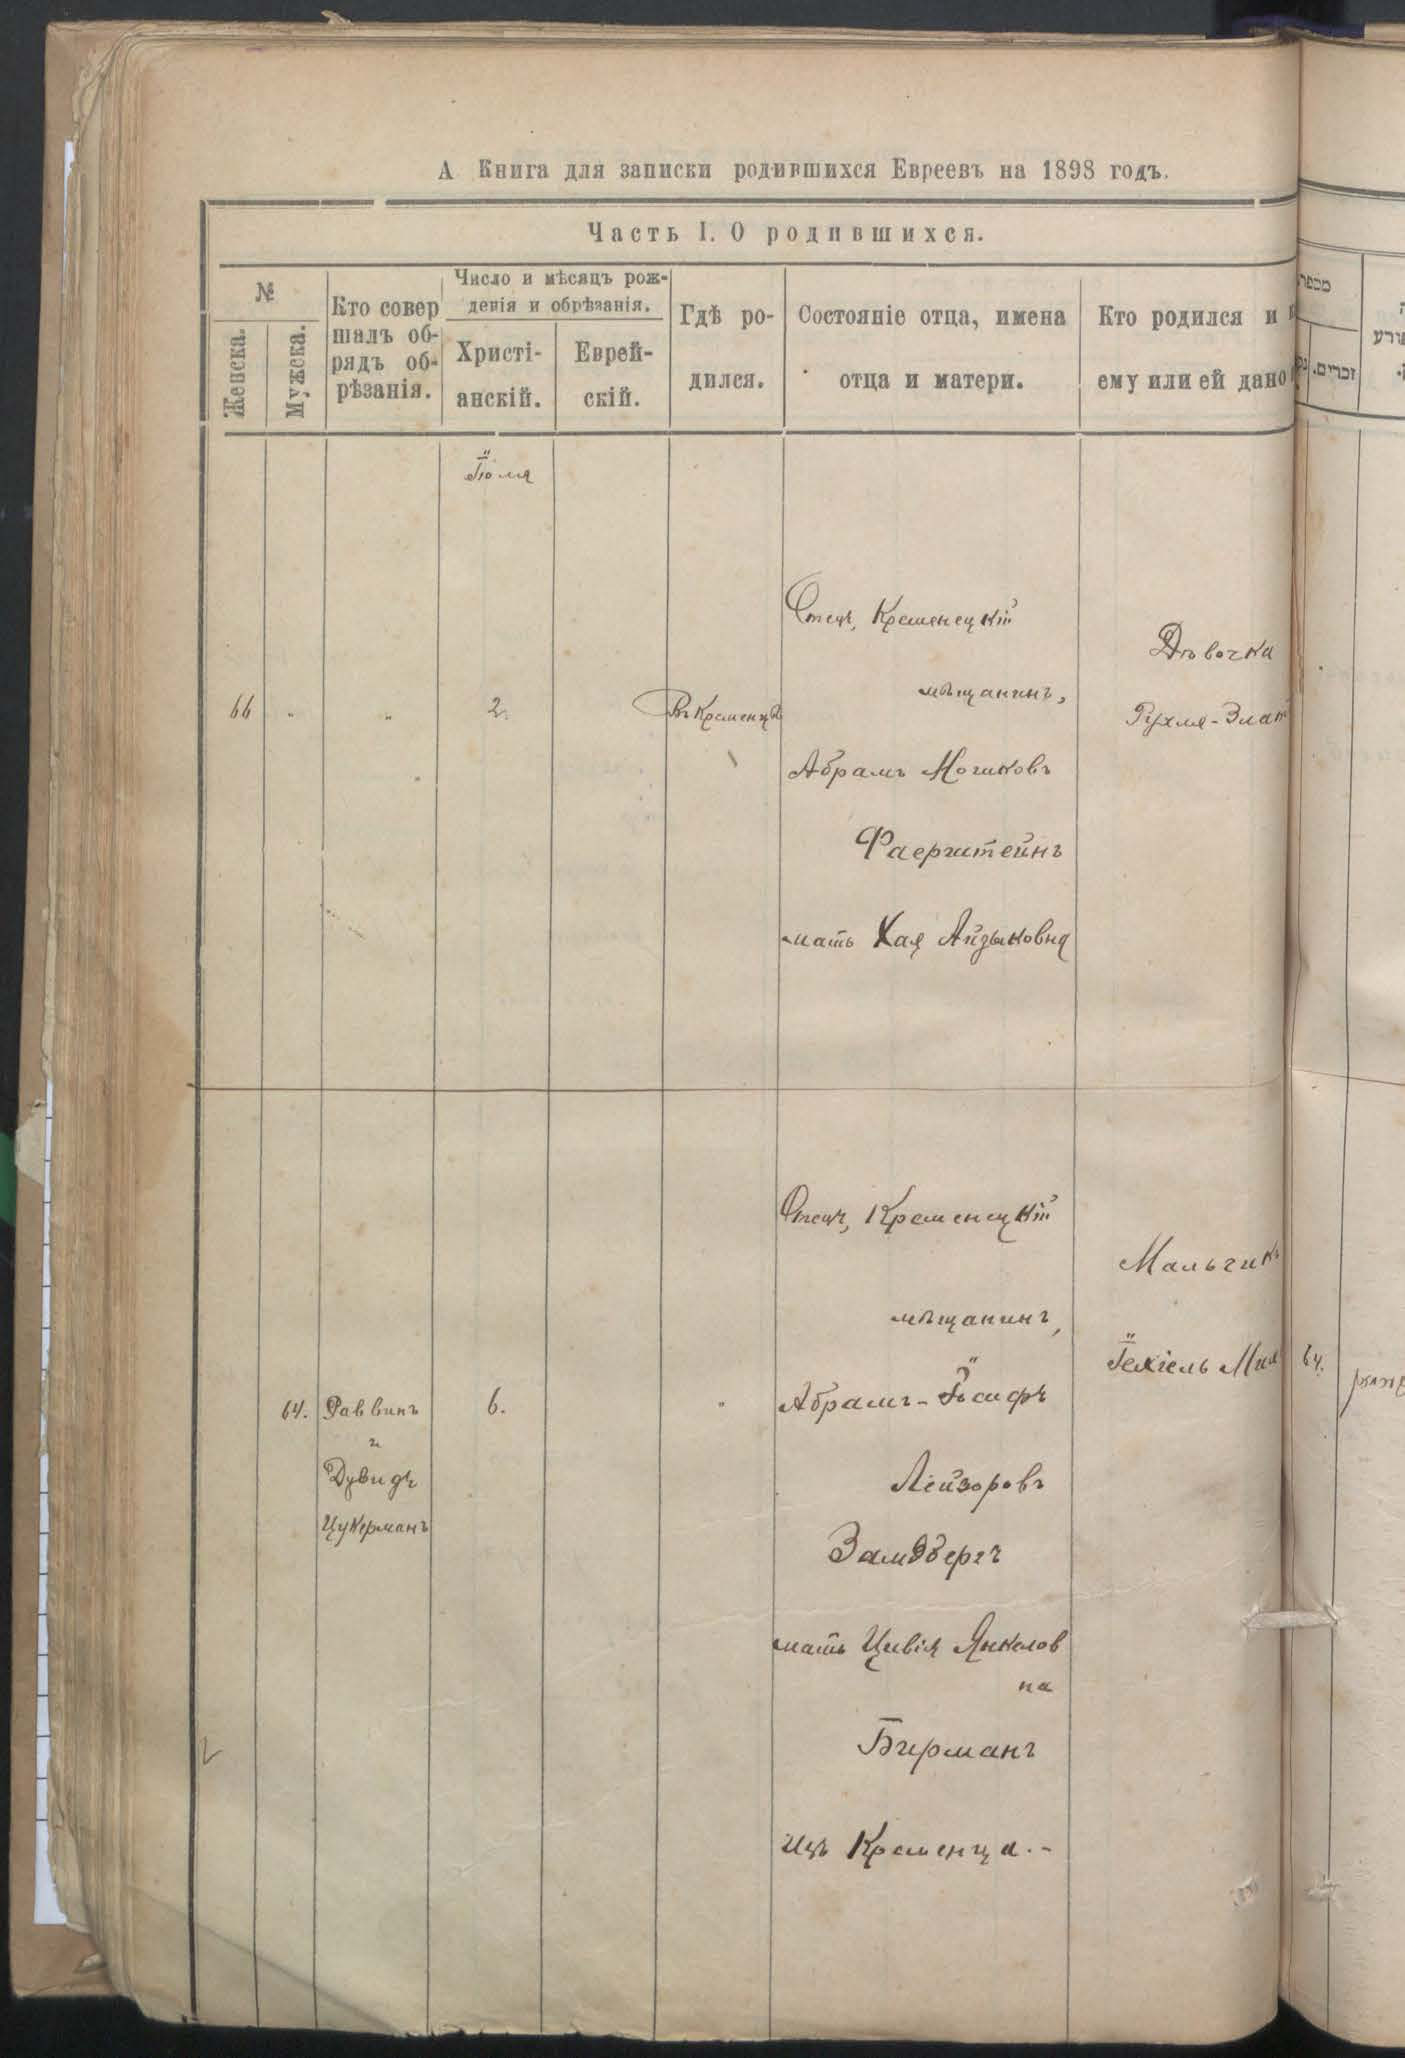 А Книга для записки родившихся Евреевъ на 1898 годъ.
Часть I. О родившихся.
№
Женска.
Мужска.
Кто совер
шалъ об-
рядъ об-
рѣзанія.
Число и мѣсяцъ рож-
денія и обрѣзанія.
Христі-
анскій.
Еврей-
скій.
Гдѣ ро-
дился.
Состояніе отца, имена
отца и матери.
Кто родился и
ему или ей дано
זכרים.
Іюля
66
2.
Въ Кременцѣ
Отецъ, Кременецкій
мѣщанинъ,
Абрамъ Мошковъ
Фаерштейнъ
мать Хая Айзыковна
Дѣвочка
Рухля-Злат
64.
Раввинъ
и
Дувидъ
Цукерманъ
6.
"
Отецъ, Кременецкій
мѣщанинъ,
Абрамъ-Іосифъ
Лейзоровъ
Замдбергъ
мать Цивія Янкелов
на
Бирманъ
изъ Кременца.-
Мальчикъ
Іехіель
64.